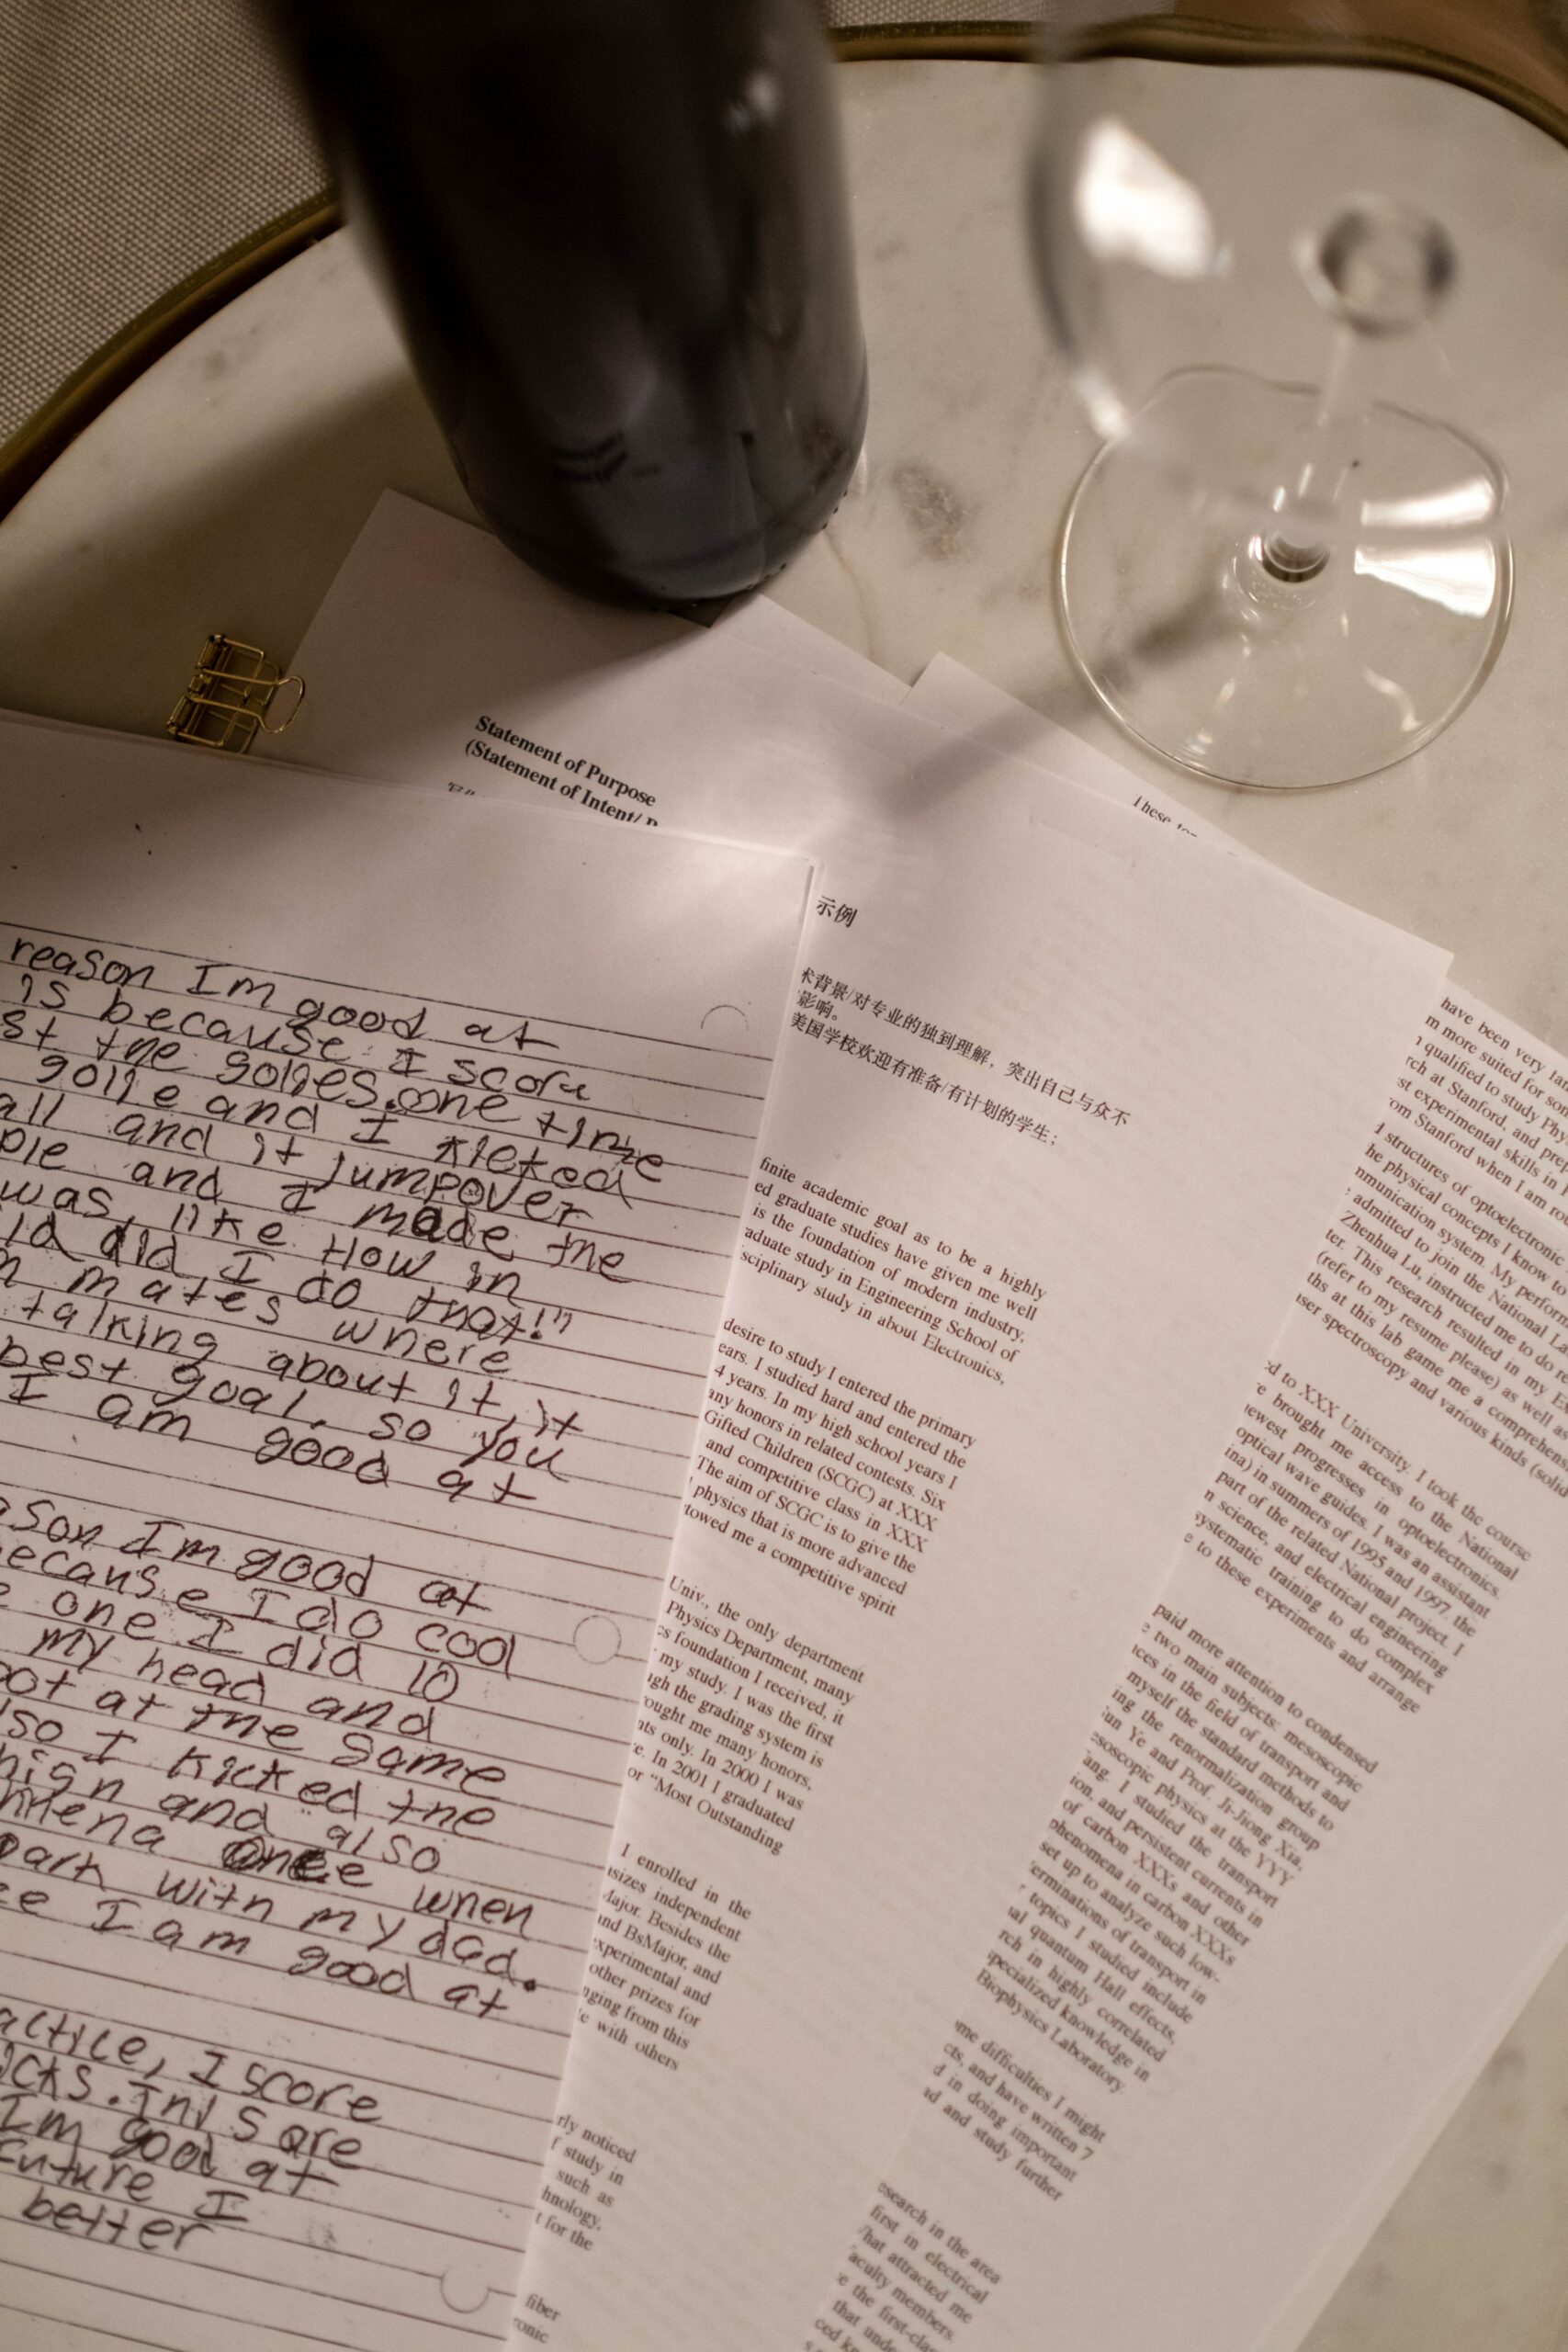 Statement of Purpose
(Statement of Intent/
These
reason Im good at
is because I score
st the golies. one time
golie and I kicked
all and it jumpover
ple and I made the
was, like How in
ld did I do that!"
n mates where
talking about it, it
best goal. so you
I am good at
ason Im good at
ecause I do cool
e one I did 10
my head and
oot at the same
lso I kicked the
high and also
once when
park with my dad.
ee I am good at
actice, I score
icks. In 5 are
Im good at
future I
better
示例
术背景/对专业的独到理解，突出自己与众不
影响。
美国学校欢迎有准备/有计划的学生；
finite academic goal as to be a highly
ed graduate studies have given me well
is the foundation of modern industry,
aduate study in Engineering School of
sciplinary study in about Electronics,
desire to study I entered the primary
ears. I studied hard and entered the
4 years. In my high school years I
any honors in related contests. Six
Gifted Children (SCGC) at XXX
and competitive class in XXX
The aim of SCGC is to give the
physics that is more advanced
towed me a competitive spirit
Univ., the only department
Physics Department, many
cs foundation I received, it
my study. I was the first
ugh the grading system is
ought me many honors,
nts only. In 2000 I was
e. In 2001 I graduated
or "Most Outstanding
I enrolled in the
asizes independent
Major. Besides the
and BsMajor, and
experimental and
other prizes for
nging from this
e with others
rly noticed
f study in
such as
hnology,
t for the
fiber
ronic
have been very
m more suited for
I qualified to study
rch at Stanford, and
st experimental skills in
om Stanford when I am
d structures of optoelectronic
he physical concepts I know to
mmunication system. My
admitted to join the National
Zhenhua Lu, instructed me to do
ter. This research resulted in my
(refer to my resume please) as well as
ths at this lab game me a
ser spectroscopy and various kinds (solid
ed to XXX University. I took the course
e brought me access to the National
newest progresses in optoelectronics.
optical wave guides. I was an assistant
ina) in summers of 1995 and 1997. the
part of the related National project. I
n science, and electrical engineering
systematic training to do complex
e to these experiments and arrange
paid more attention to condensed
e two main subjects: mesoscopic
ices in the field of transport and
myself the standard methods to
ing the renormalization group
un Ye and Prof. Ji-Jiong Xia,
esoscopic physics at the YYY
ang. I studied the transport
ion, and persistent currents in
of carbon XXXs and other
phenomena in carbon XXXs
set up to analyze such low-
erminations of transport in
topics I studied include
al quantum Hall effects,
rch in highly correlated
specialized knowledge in
Biophysics Laboratory.
me difficulties I might
cts, and have written 7
d in doing important
nd and study further
esearch in the area
first in electrical
What attracted me
aculty members.
e the
that